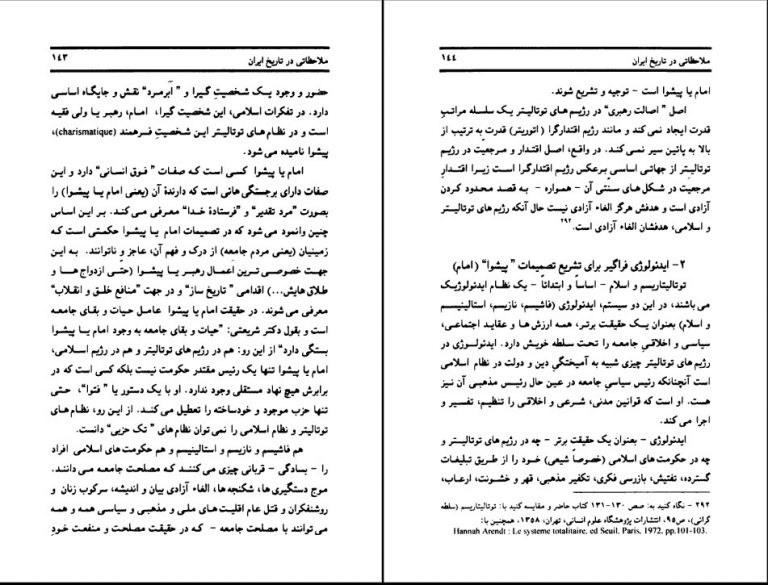 ملاحظاتی در تاریخ ایران ۱۴۳
حضور و وجود یک شخصیتِ گیرا و "اَبَرمرد" نقش و جایگاه اساسی
دارد. در تفکرات اسلامی، این شخصیت گیرا، امام، رهبر یا ولی فقیه
است و در نظام های توتالیتر این شخصیتِ فرهمند (charismatique)،
پیشوا نامیده می شود.
امام یا پیشوا کسی است که صفات "فوق انسانی" دارد و این
صفات دارای برجستگی هائی است که دارندهٔ آن (یعنی امام یا پیشوا) را
بصورت "مرد تقدیر" و "فرستادهٔ خدا" معرفی می کند. بر این اساس
چنین وانمود می شود که در تصمیمات امام یا پیشوا حکمتی است که
زمینیان (یعنی مردم جامعه) از درک و فهم آن، عاجز و ناتوانند. به این
جهت خصوصی ترین اعمال رهبر یا پیشوا (حتّی ازدواج ها و
طلاق هایش...) اقدامی "تاریخ ساز" و در جهت "منافع خلق و انقلاب"
معرفی می شوند. در حقیقت امام یا پیشوا عامل حیات و بقای جامعه
است و بقول دکتر شریعتی: "حیات و بقای جامعه به وجود امام یا پیشوا
بستگی دارد" از این رو: هم در رژیم های توتالیتر و هم در رژیم اسلامی،
امام یا پیشوا تنها یک رئیس مقتدر حکومت نیست بلکه کسی است که در
برابرش هیچ نهاد مستقلی وجود ندارد. او با یک دستور یا "فتوا"، حتی
تنها حزب موجود و خودساخته را تعطیل می کند. از این رو، نظام های
توتالیتر و نظام اسلامی را نمی توان نظام های "تک حزبی" دانست.
هم فاشیسم و نازیسم و استالینیسم و هم حکومت های اسلامی افراد
را - بسادگی - قربانی چیزی می کنند که مصلحت جامعه می دانند.
موج دستگیری ها، شکنجه ها، الغاء آزادی بیان و اندیشه، سرکوب زنان و
روشنفکران و قتل عام اقلیت های ملی و مذهبی و سیاسی همه و همه
می توانند با مصلحت جامعه - که در حقیقت مصلحت و منفعت خودِ
ملاحظاتی در تاریخ ایران ۱۴۴
امام یا پیشوا است - توجیه و تشریع شوند.
اصل "اصالت رهبری" در رژیم های توتالیتر یک سلسله مراتب
قدرت ایجاد نمی کند و مانند رژیم اقتدارگرا (اتوریتر) قدرت به ترتیب از
بالا به پائین سیر نمی کند. در واقع، اصل اقتدار و مرجعیّت در رژیم
توتالیتر از جهاتی اساسی برعکس رژیم اقتدارگرا است زیرا اقتدار
مرجعیت در شکل های سنّتی آن - همواره - به قصد محدود کردن
آزادی است و هدفش هرگز الغاء آزادی نیست حال آنکه رژیم های توتالیتر
و اسلامی، هدفشان الغاء آزادی است.۲۹۲
۲- ایدئولوژی فراگیر برای تشریع تصمیمات "پیشوا" (امام)
توتالیتاریسم و اسلام - اساساً و ابتدائاً - یک نظام ایدئولوژیک
می باشند، در این دو سیستم، ایدئولوژی (فاشیسم، نازیسم، استالینیسم
و اسلام) بعنوان یک حقیقت برتر، همه ارزش ها و عقاید اجتماعی،
سیاسی و اخلاقی جامعه را تحت سلطه خویش دارد. ایدئولوژی در
رژیم های توتالیتر چیزی شبیه به آمیختگی دین و دولت در نظام اسلامی
است آنچنانکه رئیس سیاسیِ جامعه در عین حال رئیس مذهبی آن نیز
هست. او است که قوانین مدنی، شرعی و اخلاقی را تنظیم، تفسیر و
اجرا می کند.
ایدئولوژی - بعنوان یک حقیقت برتر - چه در رژیم های توتالیتر و
چه در حکومت های اسلامی (خصوصاً شیعی) خود را از طریق تبلیغات
گسترده، تفتیش، بازرسی فکری، تکفیر مذهبی، قهر و خشونت، ارعاب،
۲۹۲ - نگاه کنید به: صص ۱۳۰-۱۳۱ کتاب حاضر و مقایسه کنید با: توتالیتاریسم (سلطه
گرائی)، ص۹۵، انتشارات پژوهشگاه علوم انسانی، تهران، ۱۳۵۸، همچنین با:
Hannah Arendt : Le systeme totalitaire, ed Seuil, Paris, 1972, pp.101-103.